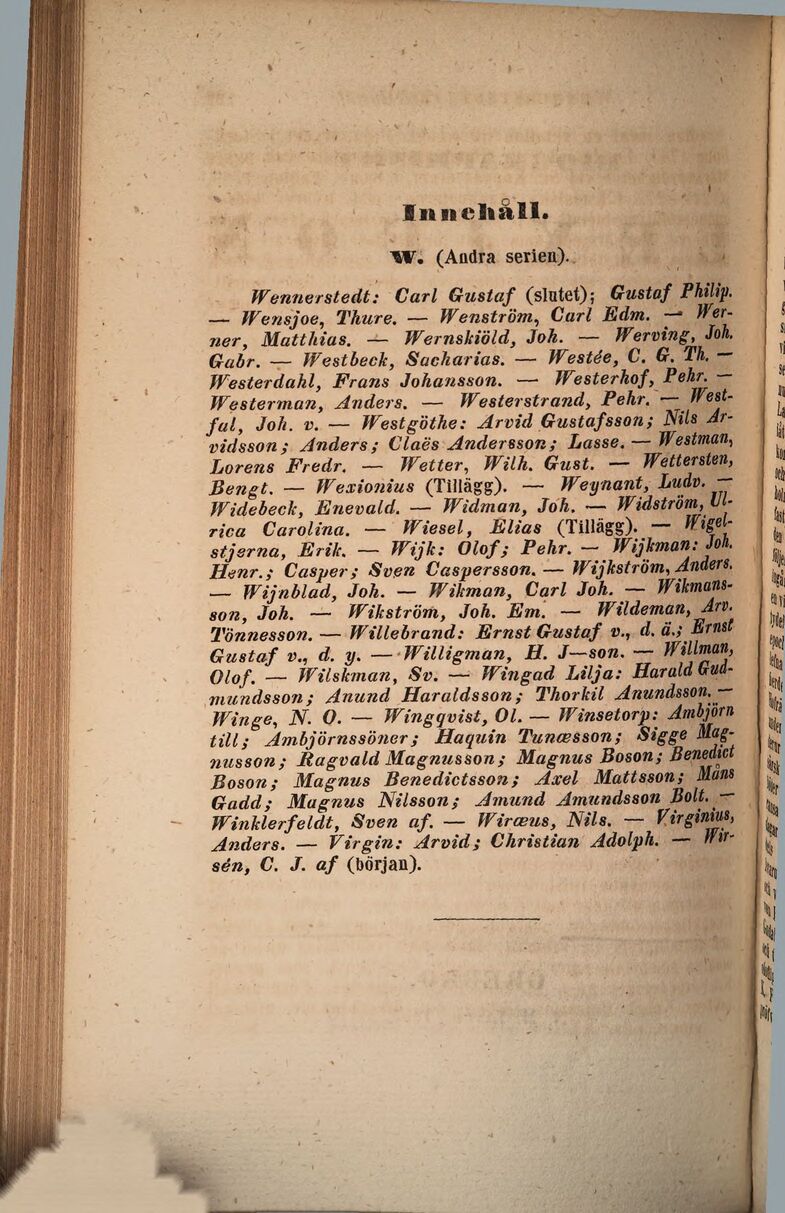 Innehåll.
W. (Andra serien).
Wennerstedt: Carl Gustaf (slutet); Gustaf Philip.
— Wensjoe, Thure. — Wenström, Carl Edm. — Wer-
ner, Matthias. — Wernskiöld, Joh. — Werving, Joh.
Gabr. — Westbeck, Sacharias. — Westée, C. G. Th. —
Westerdahl, Frans Johansson. — Westerhof, Pehr. —
Westerman, Anders. — Westerstrand, Pehr. — West-
fal, Joh. v. — Westgöthe: Arvid Gustafsson; Nils Ar-
vidsson; Anders; Claës Andersson; Lasse. — Westman,
Lorens Fredr. — Wetter, Wilh. Gust. — Wettersten,
Bengt. — Wexionius (Tillägg). — Weynant, Ludv. —
Widebeck, Enevald. — Widman, Joh. — Widström, Ul-
rica Carolina. — Wiesel, Elias (Tillägg). — Wigel-
stjerna, Erik. — Wijk: Olof; Pehr. — Wijkman: Joh.
Henr.; Casper; Sven Caspersson. — Wijkström, Anders.
— Wijnblad, Joh. — Wikman, Carl Joh. — Wikmans-
son, Joh. — Wikström, Joh. Em. — Wildeman, Arv.
Tönnesson. — Willebrand: Ernst Gustaf v., d. ä.; Ernst
Gustaf v., d. y. — Willigman, H. J—son. — Willman,
Olof. — Wilskman, Sv. — Wingad Lilja: Harald Gud-
mundsson; Anund Haraldsson; Thorkil Anundsson. —
Winge, N. O. — Wingqvist, Ol. — Winsetorp: Ambjörn
till; Ambjörnssöner; Haquin Tunæsson; Sigge Mag-
nusson; Ragvald Magnusson; Magnus Boson; Benedict
Boson; Magnus Benedictsson; Axel Mattsson; Måns
Gadd; Magnus Nilsson; Amund Amundsson Bolt. —
Winklerfeldt, Sven af. — Wiræus, Nils. — Virginius,
Anders. — Virgin: Arvid; Christian Adolph. — Wir-
sén, C. J. af (början).